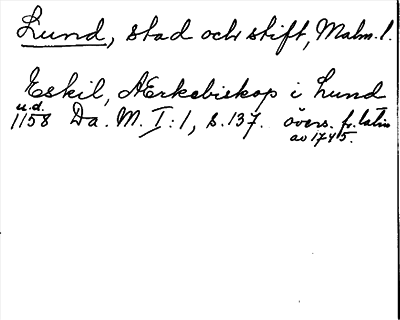 Lund, stad och stift, Malm. l.
Eskil, Ærkebiskop i Lund
u.d.
1158 Da. M. I:1, s. 137. övers. fr. latin
av 1745.